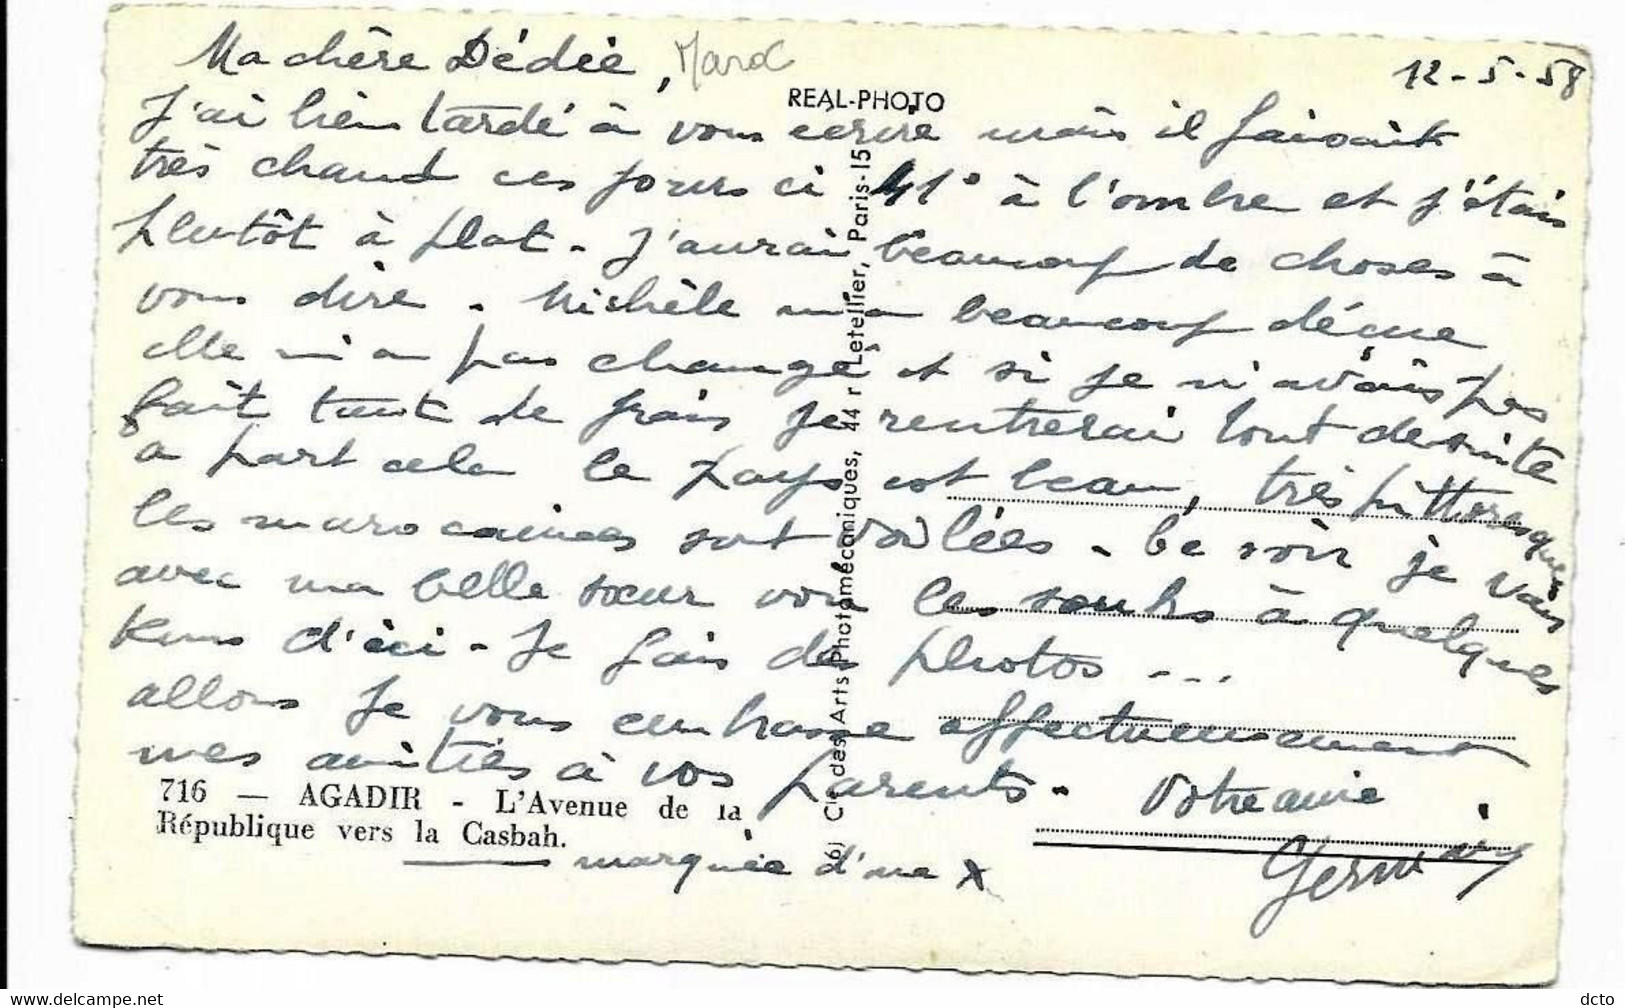 Ma chère Dédée, Maroc
12-5-58
REAL-PHOTO
J'ai bien tardé à vous ecrire mais il faisait
très chaud ces jours ci 41° à l'ombre et j'étais
plutôt à plat - J'aurai beaucoup de choses à
vous dire - Michèle m'a beaucoup déçue
elle n'a pas changé et si je n'avais pas
fait tant de frais je rentrerai tout de suite
a part cela le pays est beau, très pittoresque
les marocaines sont voilées - ce soir je vais
avec ma belle sœur voir les souks à quelques
kms d'ici - Je fais des photos ...
allons je vous embrasse affectueusement
mes amitiés à vos parents - Votre amie
716 — AGADIR - L'Avenue de la
République vers la Casbah.
marquée d'une X
Cie des Arts Photomécaniques, 44 r. Letellier, Paris-15